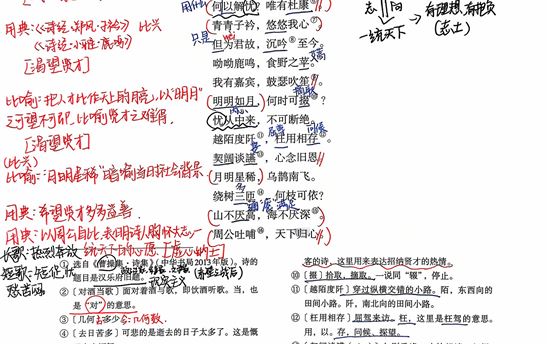 用典:《诗经·郑风·子衿》 比兴
《诗经·小雅·鹿鸣》
[渴望贤才]
比喻:把人才比作天上的明月,以“明月”
之可望不可即,比喻贤才之难得
[渴望贤才]
(比兴)
比喻:“月明星稀”暗喻当时社会背景
用典:希望贤才多多益善
用典:以周公自比,表明诗人胸怀大志,
统一天下的心愿
何以解忧?唯有杜康
青青子衿,悠悠我心
只是
但为君故,沉吟至今。
呦呦鹿鸣,食野之苹。
我有嘉宾,鼓瑟吹笙。
明明如月,何时可掇?
摘取
忧从中来,不可断绝。
内心
越陌度阡,枉用相存。
屈驾
问候
契阔谈䜩,心念旧恩
月明星稀,乌鹊南飞。
绕树三匝,何枝可依?
满足
山不厌高,海不厌深
周公吐哺,天下归心
志 阳
一统天下
(志士)
长歌:热烈奔放
短歌:短促,忧
愁苦闷
① 选自《曹操集·诗集》(中华书局2013年版)。诗的
题目是汉乐府旧题。
② 〔对酒当歌〕面对着酒与歌,即饮酒听歌。当,也
是“对”的意思。
③ 〔几何〕多少。
几何数
④ 〔去日苦多〕可悲的是逝去的日子太多了。这是慨
客的诗,这里用来表达招纳贤才的热情。
⑩ 〔掇〕拾取,摘取。一说同“辍”,停止。
⑪ 〔越陌度阡〕穿过纵横交错的小路。陌,东西向的
田间小路。阡,南北向的田间小路。
⑫ 〔枉用相存〕屈驾来访。枉,这里是枉驾的意思。
用,以。存,问候、探望。